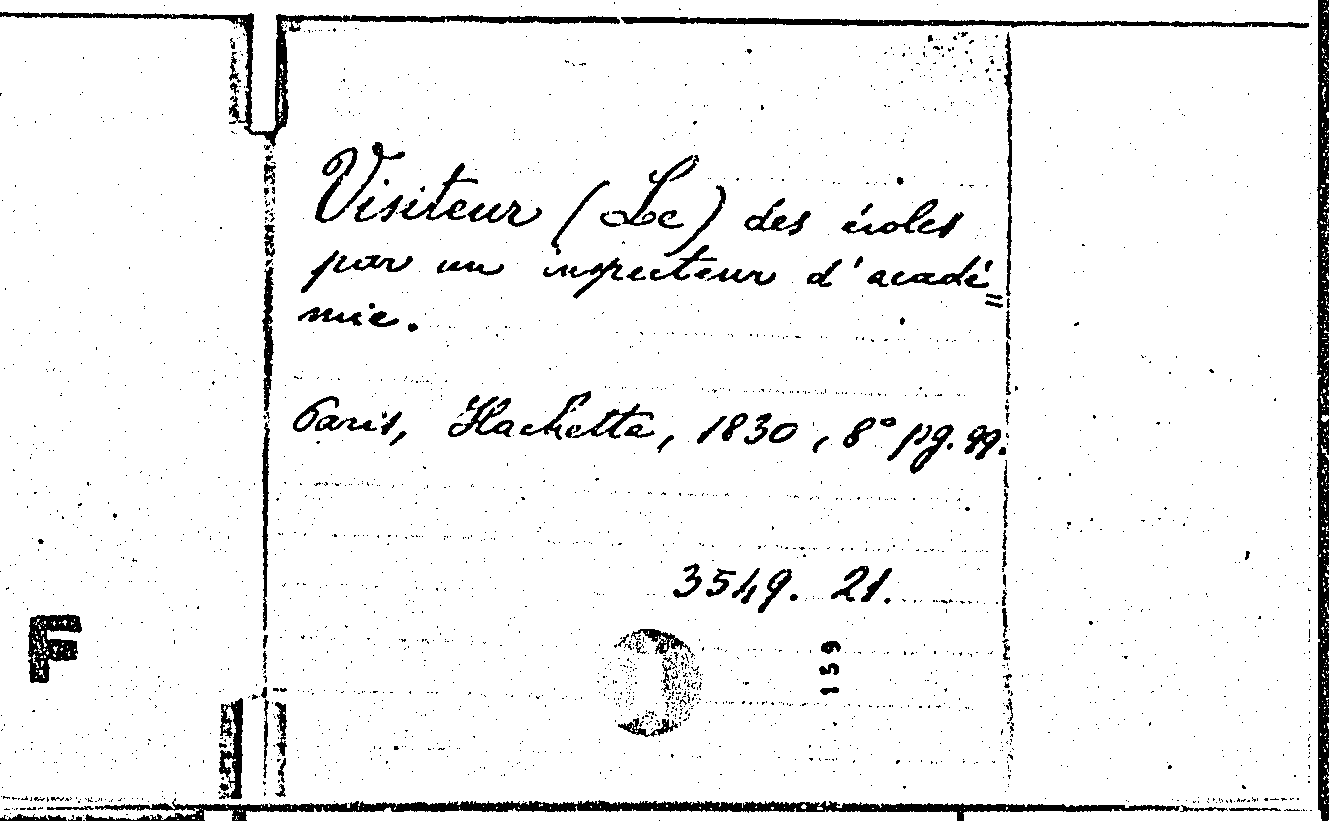 Visiteur (Le) des écoles
par un inspecteur d'acadé=
mie.
Paris, Hachette, 1830, 8° pg. 99.
3549. 21.
159
F